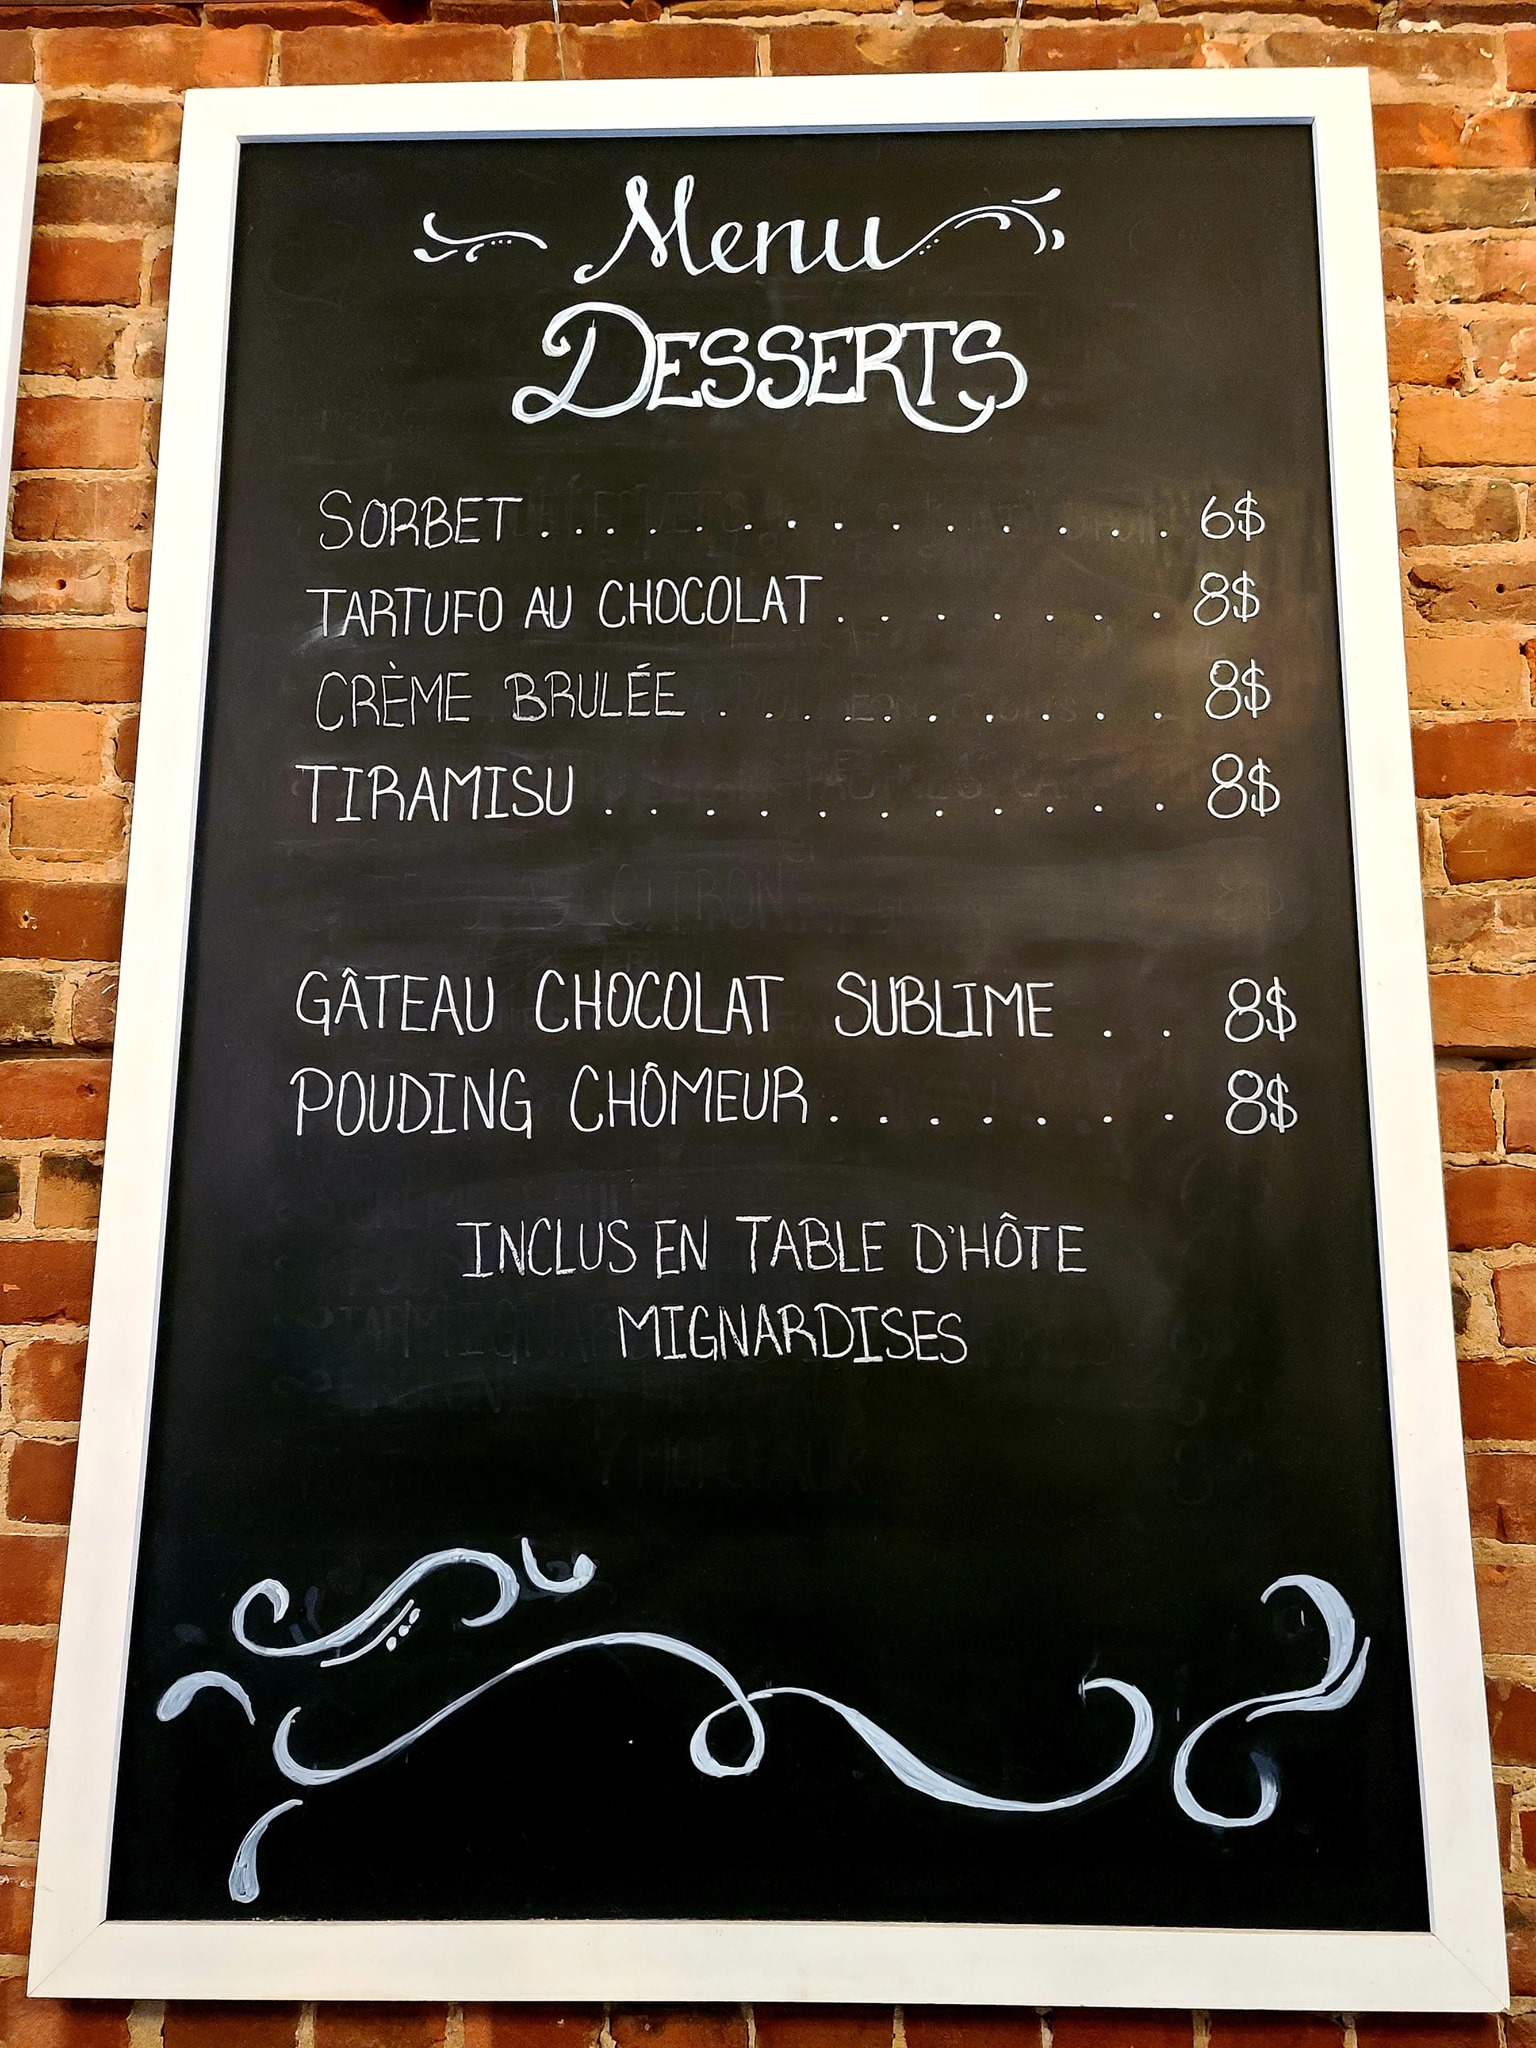 Menu
DESSERTS
SORBET . . . . . . . . . . . . . . 6$
TARTUFO AU CHOCOLAT . . . . . . . 8$
CRÈME BRULÉE . . . . . . . . . 8$
TIRAMISU . . . . . . . . . . . 8$
CITRON
GÂTEAU CHOCOLAT SUBLIME . . 8$
POUDING CHÔMEUR . . . . . . . 8$
INCLUS EN TABLE D'HÔTE
MIGNARDISES